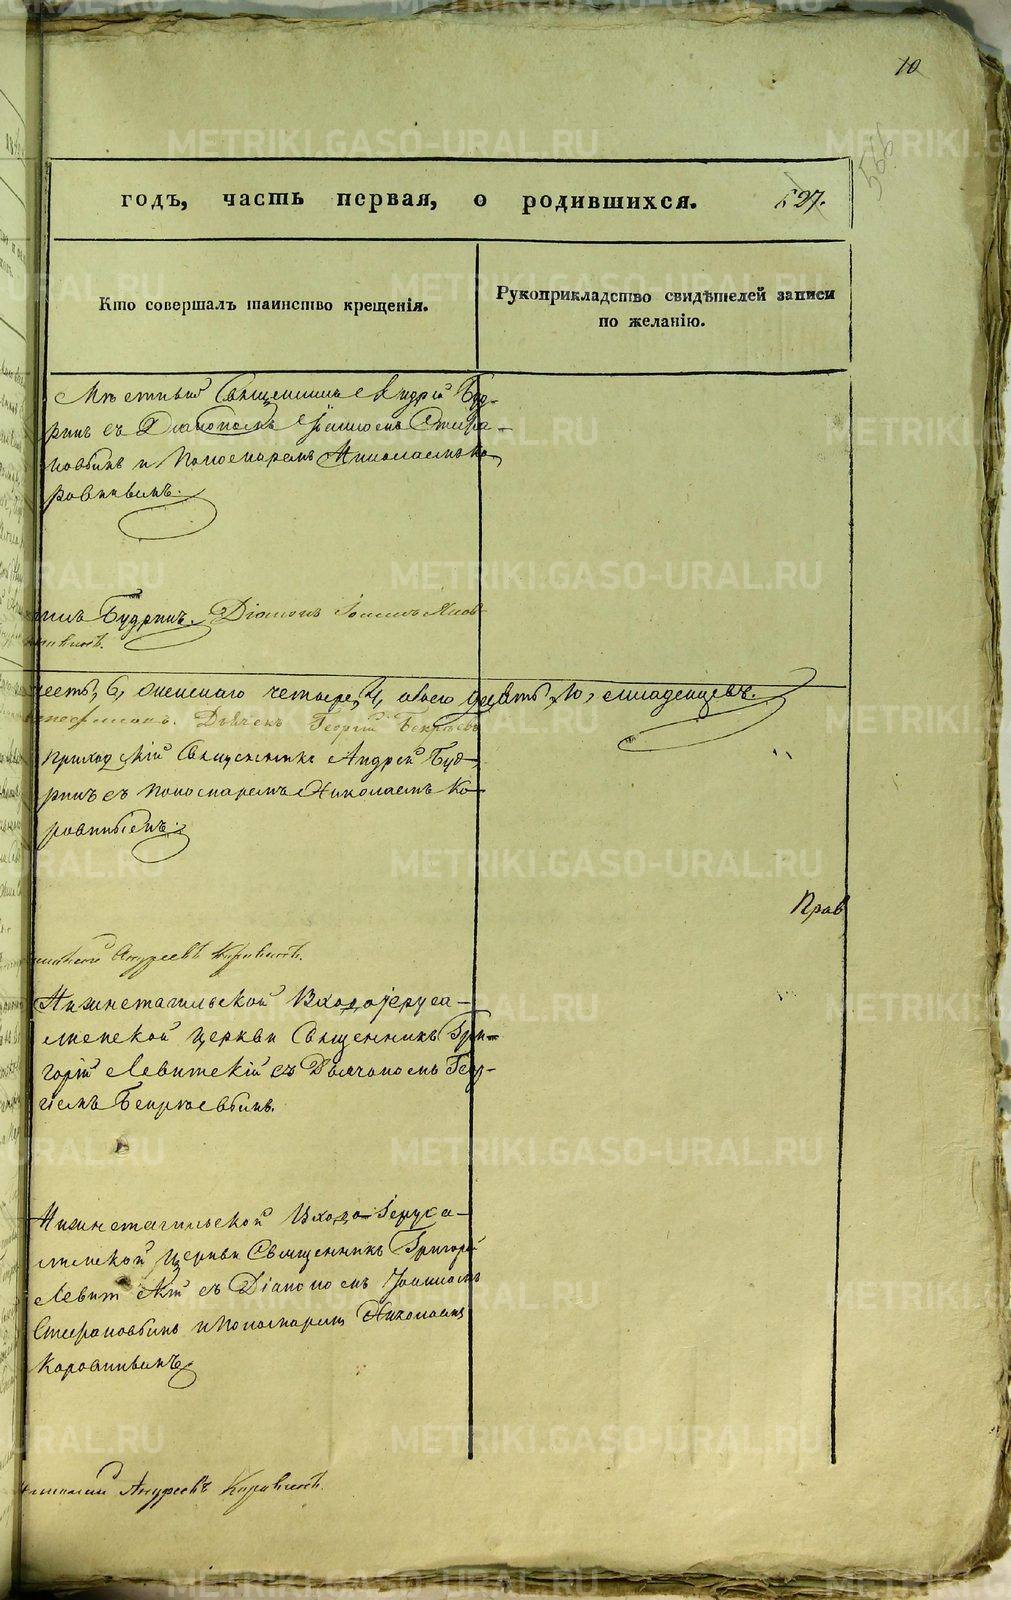 10
565
годъ, часть первая, о родившихся. 527.
Кто совершалъ таинство крещенія.
Рукоприкладство свидѣтелей записи
по желанію.
Мѣстный Священникъ Андрей Буд-
ринъ съ Діакономъ Іоанномъ Стефа-
новымъ и Пономаремъ Николаемъ Ко
ровинымъ.
Будринъ. Діаконъ Іоаннъ
6, женскаго четыре, 4, обоего десять, 10, младенцевъ.
Дьячекъ Георгій
Приходскій Священникъ Андрей Буд-
ринъ съ Пономаремъ Николаемъ Ко-
ровинымъ.
Прав
Андреевъ Коровинъ.
Нижнетагильской Входоіеруса-
лимской церкви Священникъ Гри-
горій Левитскій съ Дьячкомъ Геор-
гіемъ
Нижнетагильской Входо-Іеруса-
лимской церкви Священникъ Григорій
Левитскій съ Діакономъ Іоанномъ
Стефановымъ и Пономаремъ Николаемъ
Коровинымъ
Андреевъ Коровинъ.
METRIKI.GASO-URAL.RU